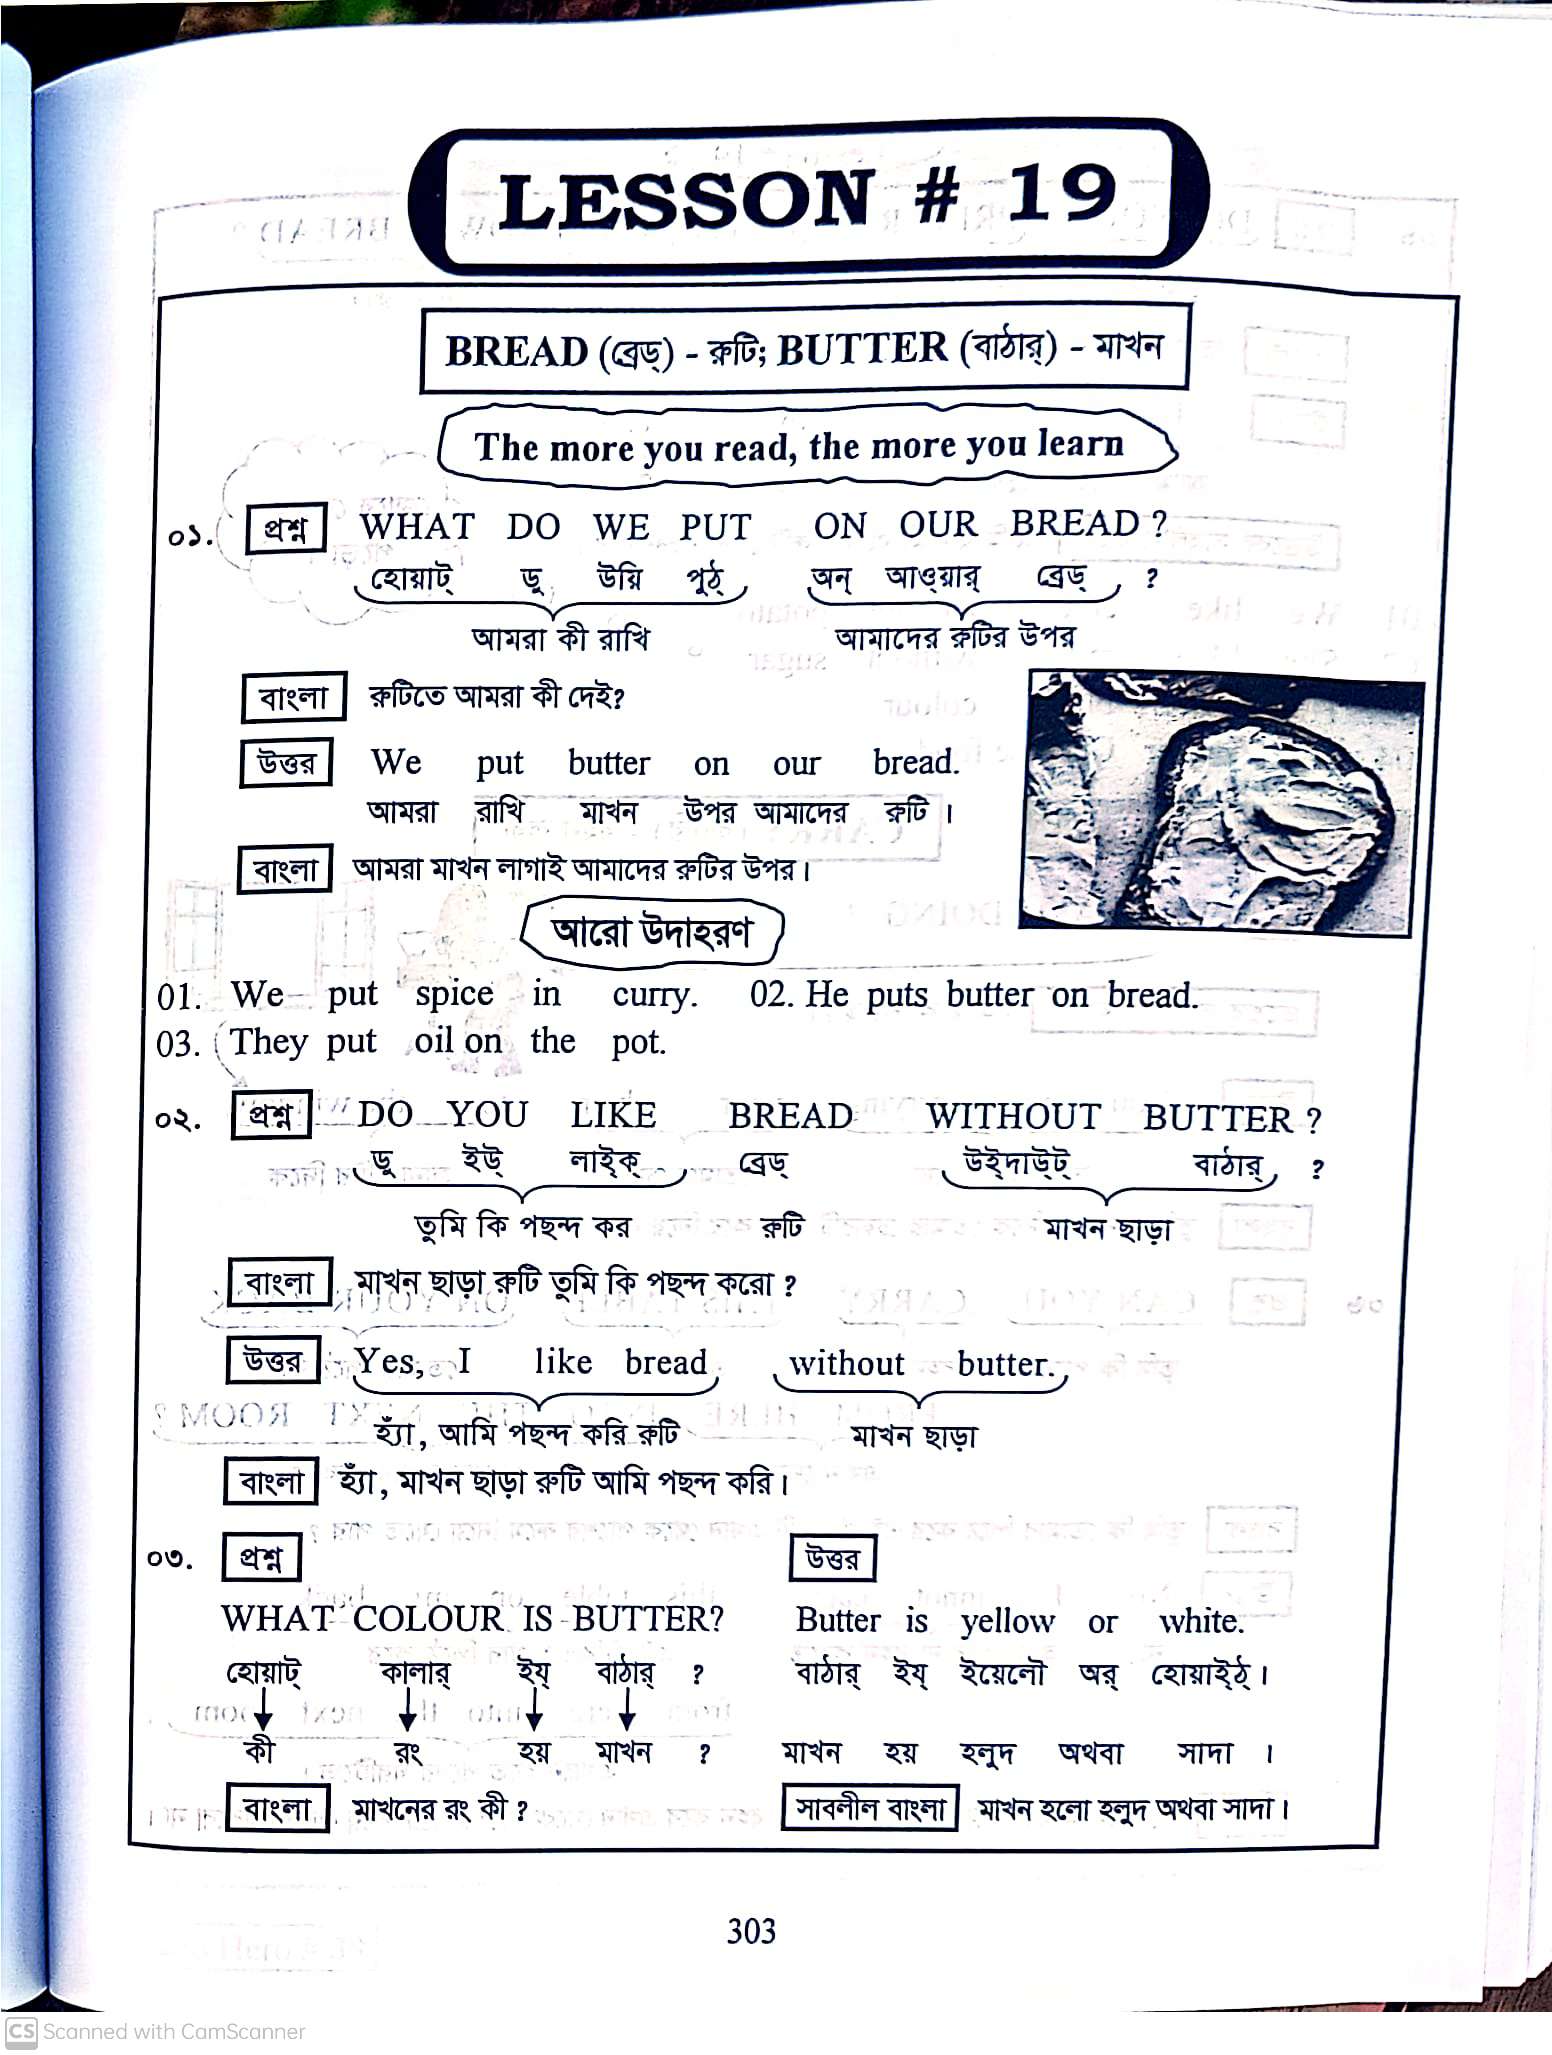 LESSON # 19
BREAD (ব্রেড্) - রুটি; BUTTER (বাঠার্) - মাখন
The more you read, the more you learn
০১. প্রশ্ন WHAT DO WE PUT ON OUR BREAD ?
হোয়াট্ ডু উয়ি পুঠ্ অন্ আওয়ার্ ব্রেড্ ?
আমরা কী রাখি আমাদের রুটির উপর
বাংলা রুটিতে আমরা কী দেই?
উত্তর We put butter on our bread.
আমরা রাখি মাখন উপর আমাদের রুটি ।
বাংলা আমরা মাখন লাগাই আমাদের রুটির উপর।
আরো উদাহরণ
01. We put spice in curry. 02. He puts butter on bread.
03. They put oil on the pot.
০২. প্রশ্ন DO YOU LIKE BREAD WITHOUT BUTTER ?
ডু ইউ্ লাই্ক্ ব্রেড্ উই্দাউ্ট্ বাঠার্ ?
তুমি কি পছন্দ কর রুটি মাখন ছাড়া
বাংলা মাখন ছাড়া রুটি তুমি কি পছন্দ করো ?
উত্তর Yes, I like bread without butter.
হ্যাঁ, আমি পছন্দ করি রুটি মাখন ছাড়া
বাংলা হ্যাঁ, মাখন ছাড়া রুটি আমি পছন্দ করি।
০৩. প্রশ্ন উত্তর
WHAT COLOUR IS BUTTER? Butter is yellow or white.
হোয়াট্ কালার্ ইয্ বাঠার্ ? বাঠার্ ইয্ ইয়েলৌ অর্ হোয়াই্ঠ্।
কী রং হয় মাখন ? মাখন হয় হলুদ অথবা সাদা ।
বাংলা মাখনের রং কী ? সাবলীল বাংলা মাখন হলো হলুদ অথবা সাদা।
303
CS Scanned with CamScanner